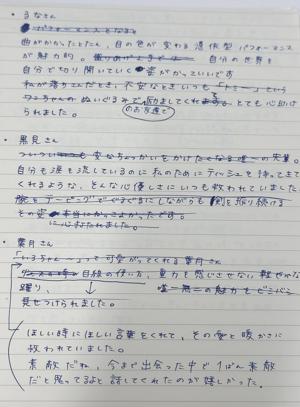 ・るなさん
曲がかかったとたん、目の色が変わる憑依型パフォーマンス
が魅力的。自分の世界を
自分で切り開いていく姿がかっこいいです
私が落ちこんだとき、不安なときいつも「トミー」という
ワンちゃんのぬいぐるみで励ましてくれ とても心助け
のお友達で
られました。
・黒見さん
ついつい 変なちょっかいをかけたくなる唯一の先輩。
自分も涙を流しているのに私のためにティッシュを持ってきて
くれるような、そんな心優しさにいつも救われていました
腕をテーピングでぐるぐるにしながらも剣を振り続ける
その姿 本当にかっこよかったです。
に心打たれました。
・葉月さん
「いろちゃん〜」って可愛がってくれる葉月さん
目線の使い方、重力を感じさせない軽やかな
踊り、唯一無二の魅力をビシバシ
見せつけられました。
ほしい時にほしい言葉をくれて、その愛と暖かさに
救われていました。
素敵だね、今まで出会った中で1ばん素敵
だと思ってるよと話してくれたのが嬉しかった。